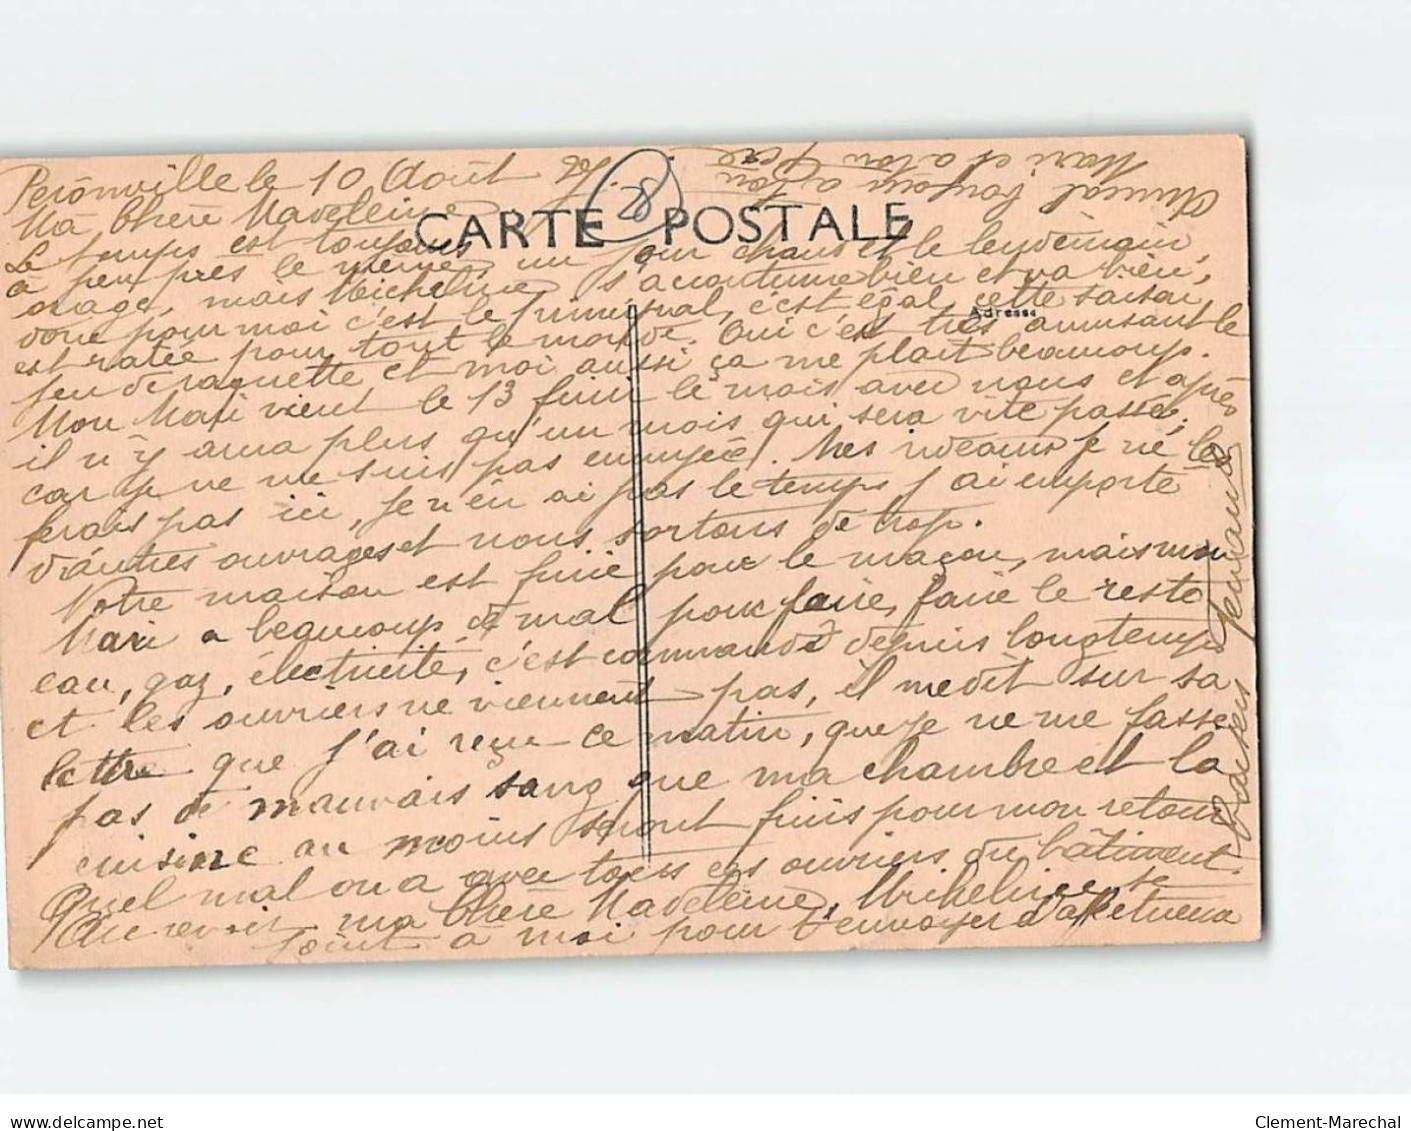 Peronville le 10 Août
28
CARTE POSTALE
Ma Chère Madeleine
Le temps est toujours
a peu près le même, un jour chaud et le lendemain,
orage, mais Micheline s'acoutume bien et va bien,
donc pour moi c'est le principal, c'est égal cette saison
Adresse
est ratée pour tout le monde. Oui c'est très amusant le
jeu de raquette et moi aussi ça me plait beaucoup.
Mon Mari vient le 13 finir le mois avec nous et après
il n'y aura plus qu'un mois qui sera vite passé,
car je ne me suis pas ennuyée. Mes rideaux je ne les
ferais pas ici, je n'en ai pas le temps j'ai emporté
d'autres ouvrages et nous sortons de trop.
Notre maison est finie pour le maçon, mais mon
Mari a beaucoup de mal pour faire, faire le reste
eau, gaz, électricité, c'est commandé depuis longtemps
et les ouvriers ne viennent pas, il me dit sur sa
lettre que j'ai reçue ce matin, que je ne me fasse
pas de mauvais sang que ma chambre et la
cuisine au moins seront finis pour mon retour
Quel mal on a avec tous ces ouvriers du bâtiment.
Au revoir ma Chère Madeleine, Micheline se
joint à moi pour t'envoyer d'affectueux
baisers Fernande
Amical bonjour a ton
Mari et a ton Père
Clement-Marechal
www.delcampe.net